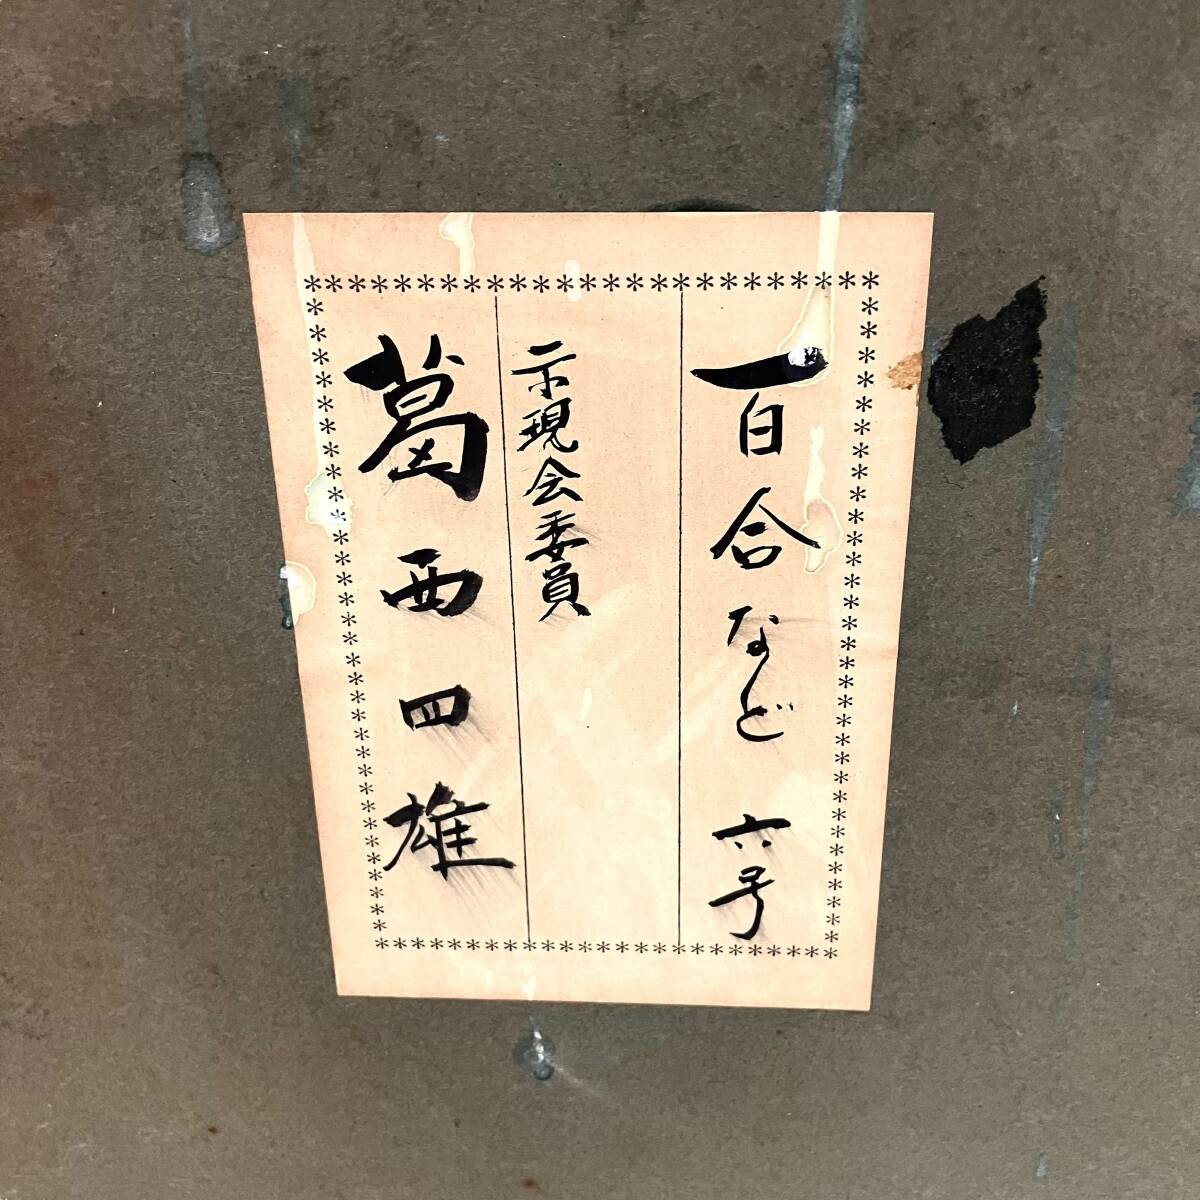 百合など 六号
示現会委員
葛西四雄